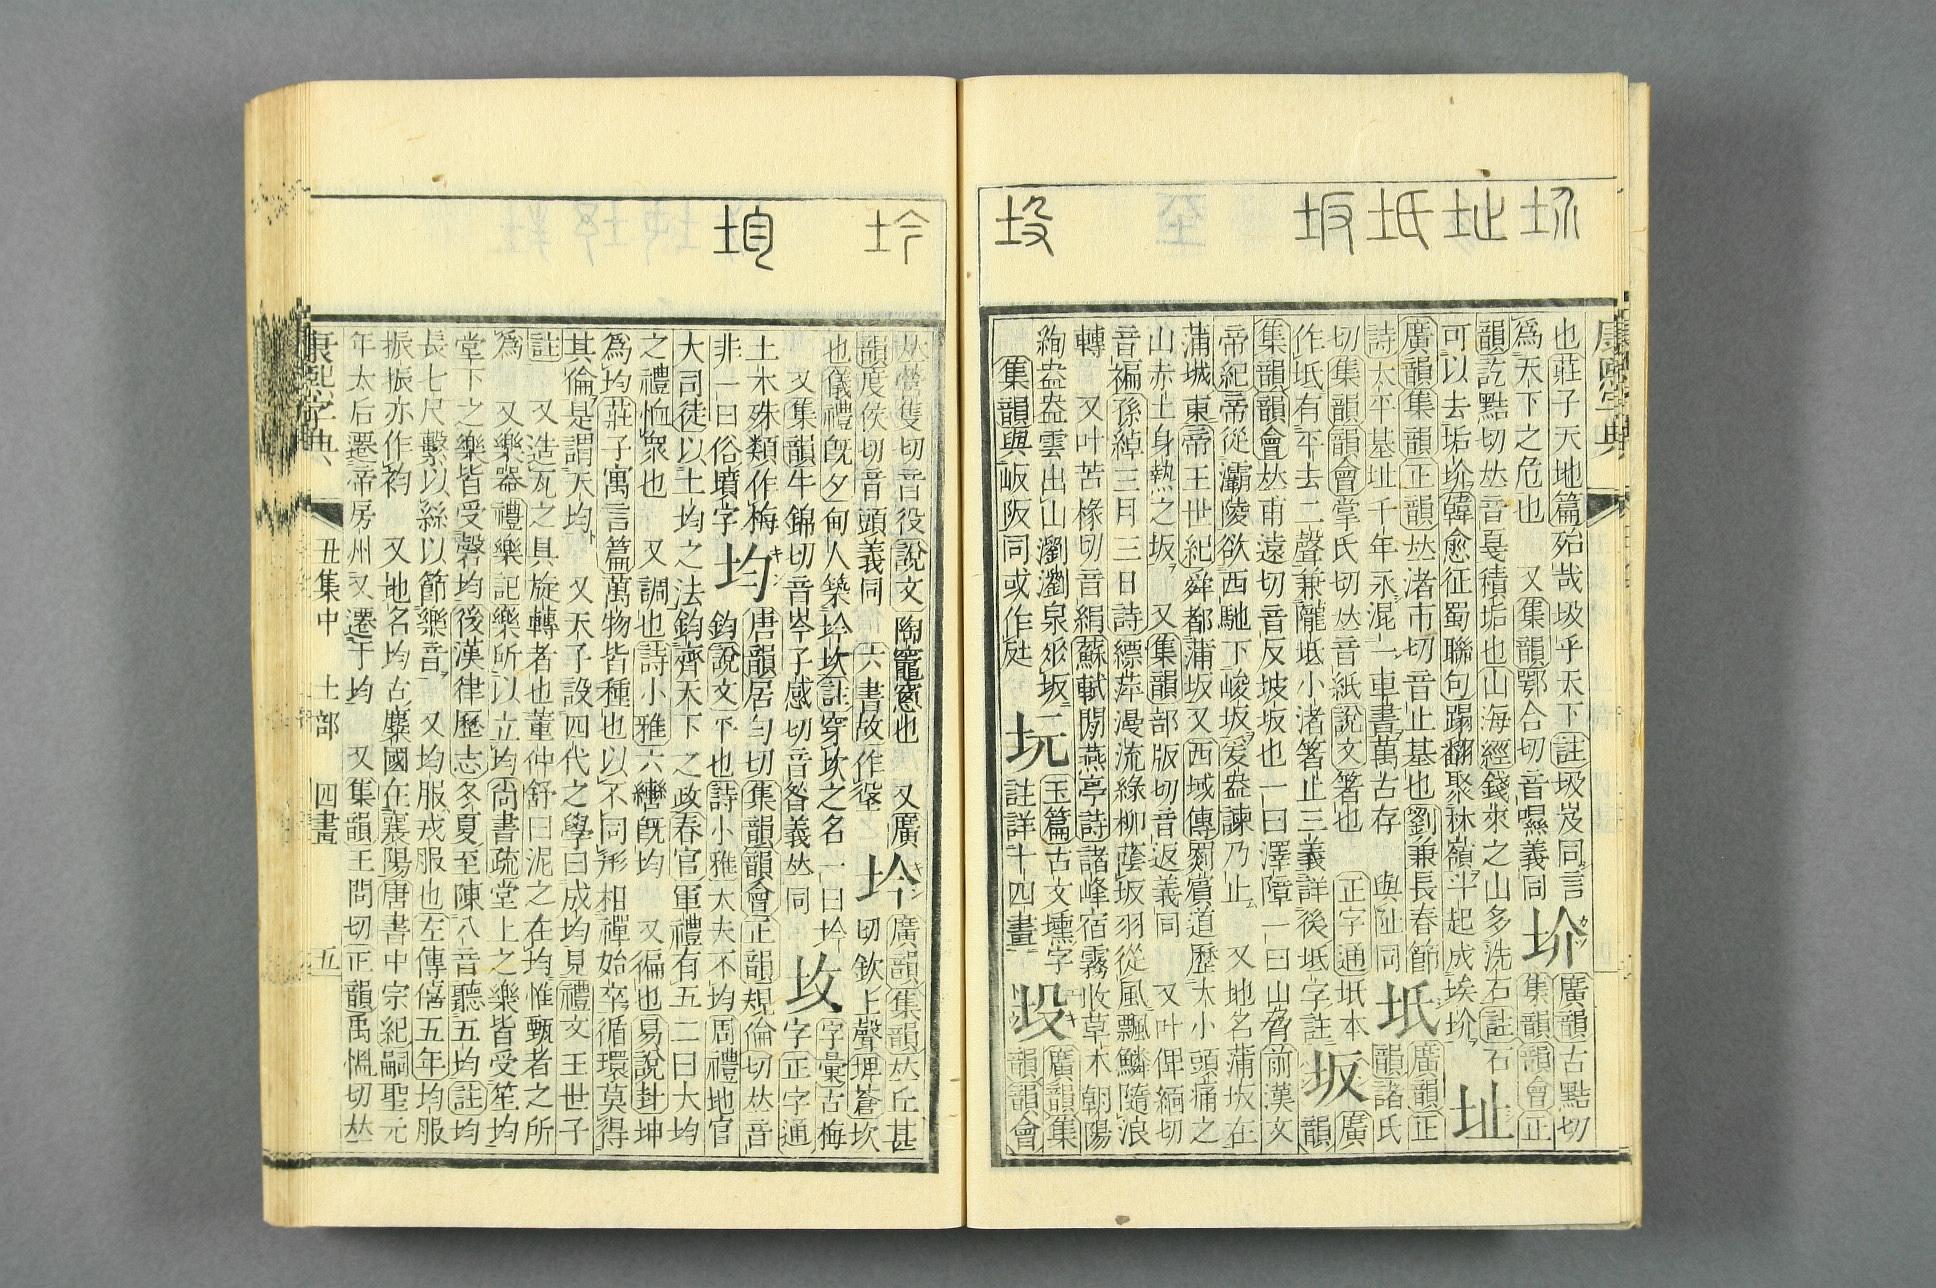 圿 址 坁 坂 坄
康熙字典
也莊子天地篇殆哉圾乎天下註圾岌同言 圿 廣韻古黠切
爲天下之危也 又集韻鄂合切音㬤義同 集韻韻會正
韻訖黠切𠀤音戛積垢也山海經錢來之山多洗石註石 址
可以去垢圿韓愈征蜀聯句蹋翻聚林嶺斗起成埃圿
廣韻集韻正韻𠀤渚市切音止基也劉兼長春節 坁 廣韻正
詩太平基址千年永混一車書萬古存 與阯同 韻諸氏
切集韻韻會掌氏切𠀤音紙說文箸也 正字通坁本 坂 廣
作坻有平去二聲兼隴坻小渚箸止三義詳後坻字註 韻
集韻韻會𠀤甫遠切音反坡坂也一曰澤障一曰山脅前漢文
帝紀帝從灞陵欲西馳下峻坂爰盎諫乃止 又地名蒲坂在
蒲城東帝王世紀舜都蒲坂又西域傳罽賔道歷大小頭痛之
山赤土身熱之坂 又集韻部版切音返義同 又叶俾緬切
音褊孫綽三月三日詩縹萍漫流綠柳蔭坂羽從風飄鱗隨浪
轉 又叶苦椽切音絹蘇軾閱燕亭詩諸峰宿霧收草木朝陽
絢盎盎雲出山瀏瀏泉水坂 坃 玉篇古文壎字 坄 廣韻集
集韻與岅阪同或作 註詳十四畫 韻韻會
坅 均
𠀤營隻切音役說文陶竈窻也 又廣 坅 廣韻集韻𠀤丘甚
韻度侯切音頭義同 六書故作垼 切欽上聲埤蒼坎
也儀禮旣夕甸人築坅坎註穿坎之名一曰坅 坆 字彙古梅
又集韻牛錦切音岑子感切音昝義𠀤同 字正字通
土木殊類作梅 均 唐韻居勻切集韻韻會正韻規倫切𠀤音
非一曰俗墳字 鈞說文平也詩小雅大夫不均周禮地官
大司徒以土均之法鈞齊天下之政春官軍禮有五二曰大均
之禮恤衆也 又調也詩小雅六轡旣均 又徧也易說卦坤
爲均莊子寓言篇萬物皆種也以不同形相禪始卒循環莫得
其倫是謂天均 又天子設四代之學曰成均見禮文王世子
註 又造瓦之具旋轉者也董仲舒曰泥之在均惟甄者之所
爲 又樂器禮樂記樂所以立均尙書疏堂上之樂皆受笙均
堂下之樂皆受磬均後漢律歷志冬夏至陳八音聽五均註均
長七尺繫以絲以節樂音 又均服戎服也左傳僖五年均服
振振亦作袀 又地名均古麇國在襄陽唐書中宗紀嗣聖元
年太后遷帝房州又遷于均 又集韻王問切正韻禹慍切𠀤
康熙字典 丑集中 土部 四畫 五